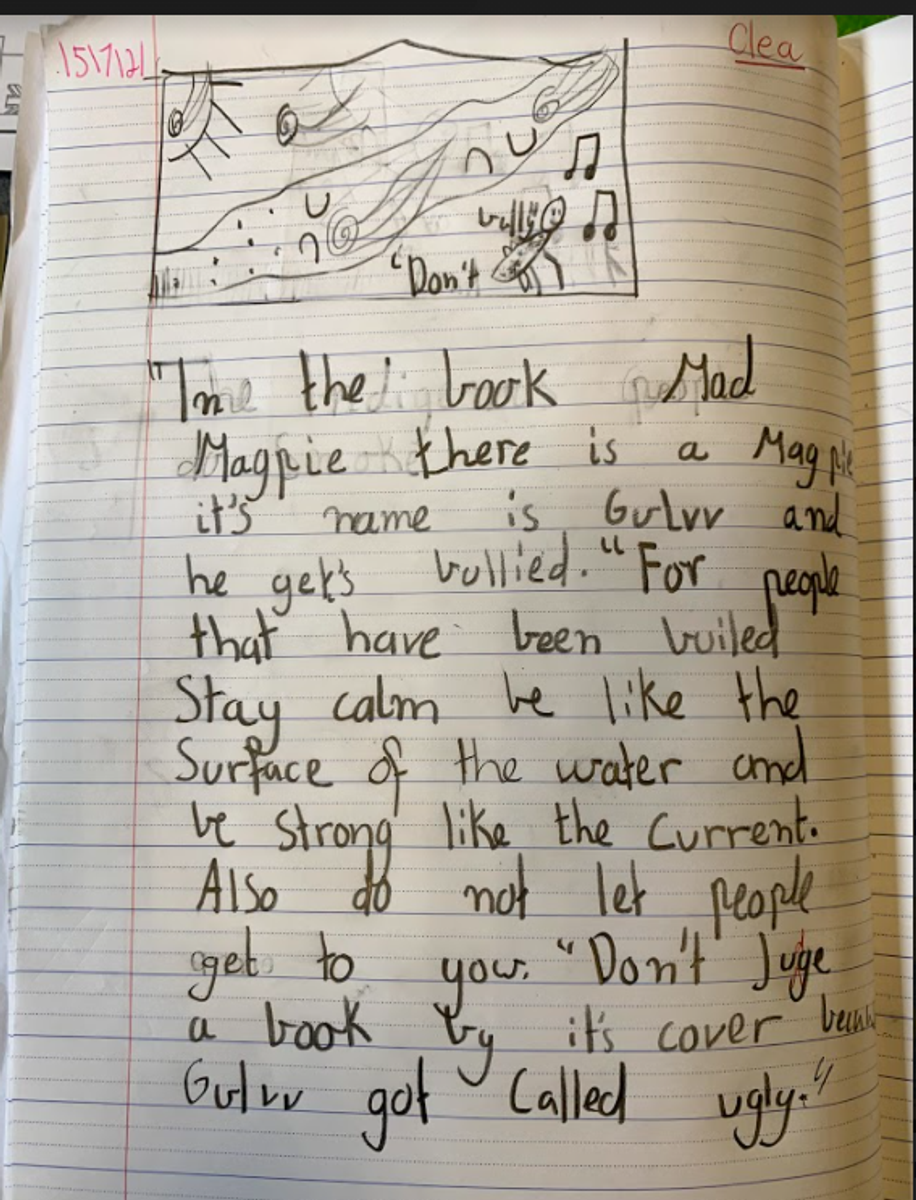 15\7\21
Clea
bully"
"Don't
"In the book Mad
Magpie there is a Magpie
it's name is Guluu and
he get's bullied." For people
that have been builed
Stay calm be like the
Surface of the water and
be strong like the Current.
Also do not let people
get to you. "Don't Juge
a book by it's cover
Guluu got Called ugly."